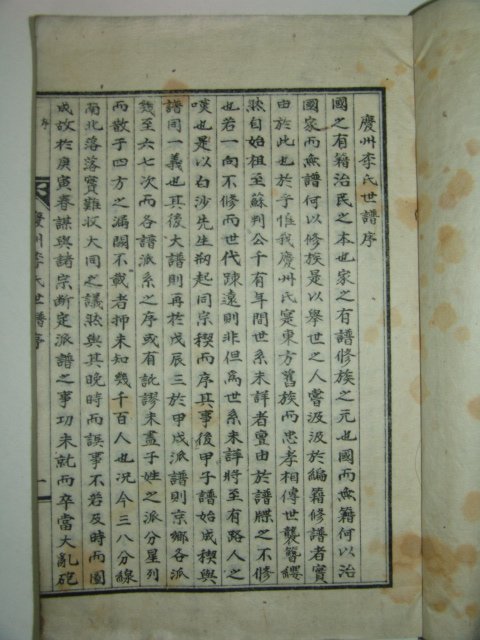 慶州李氏世譜序
國之有籍治民之本也家之有譜修族之元也國而無籍何以治
國家而無譜何以修族是以舉世之人嘗汲汲於編籍修譜者實
由於此也於乎惟我慶州氏寔東方舊族而忠孝相傳世襲簪纓
然自始祖至蘇判公千有年間世系未詳者亶由於譜牒之不修
也若一向不修而世代疎遠則非但爲世系未詳將至有路人之
嘆也是以白沙先生刱起同宗稧而序其事後甲子譜始成稧與
譜同一義也其後大譜則再於戊辰三於甲戌派譜則京鄉各派
幾至六七次而各譜派系之序或有訛謬未盡子姓之派分星列
而散于四方之漏闕不載者抑未知幾千百人也況今三八分線
南北落落實難收大同之議然與其晚時而誤事不若及時而圖
成故於庚寅春謀與諸宗斷定派譜之事功未就而卒當大亂砲
序
慶州李氏世譜序
一